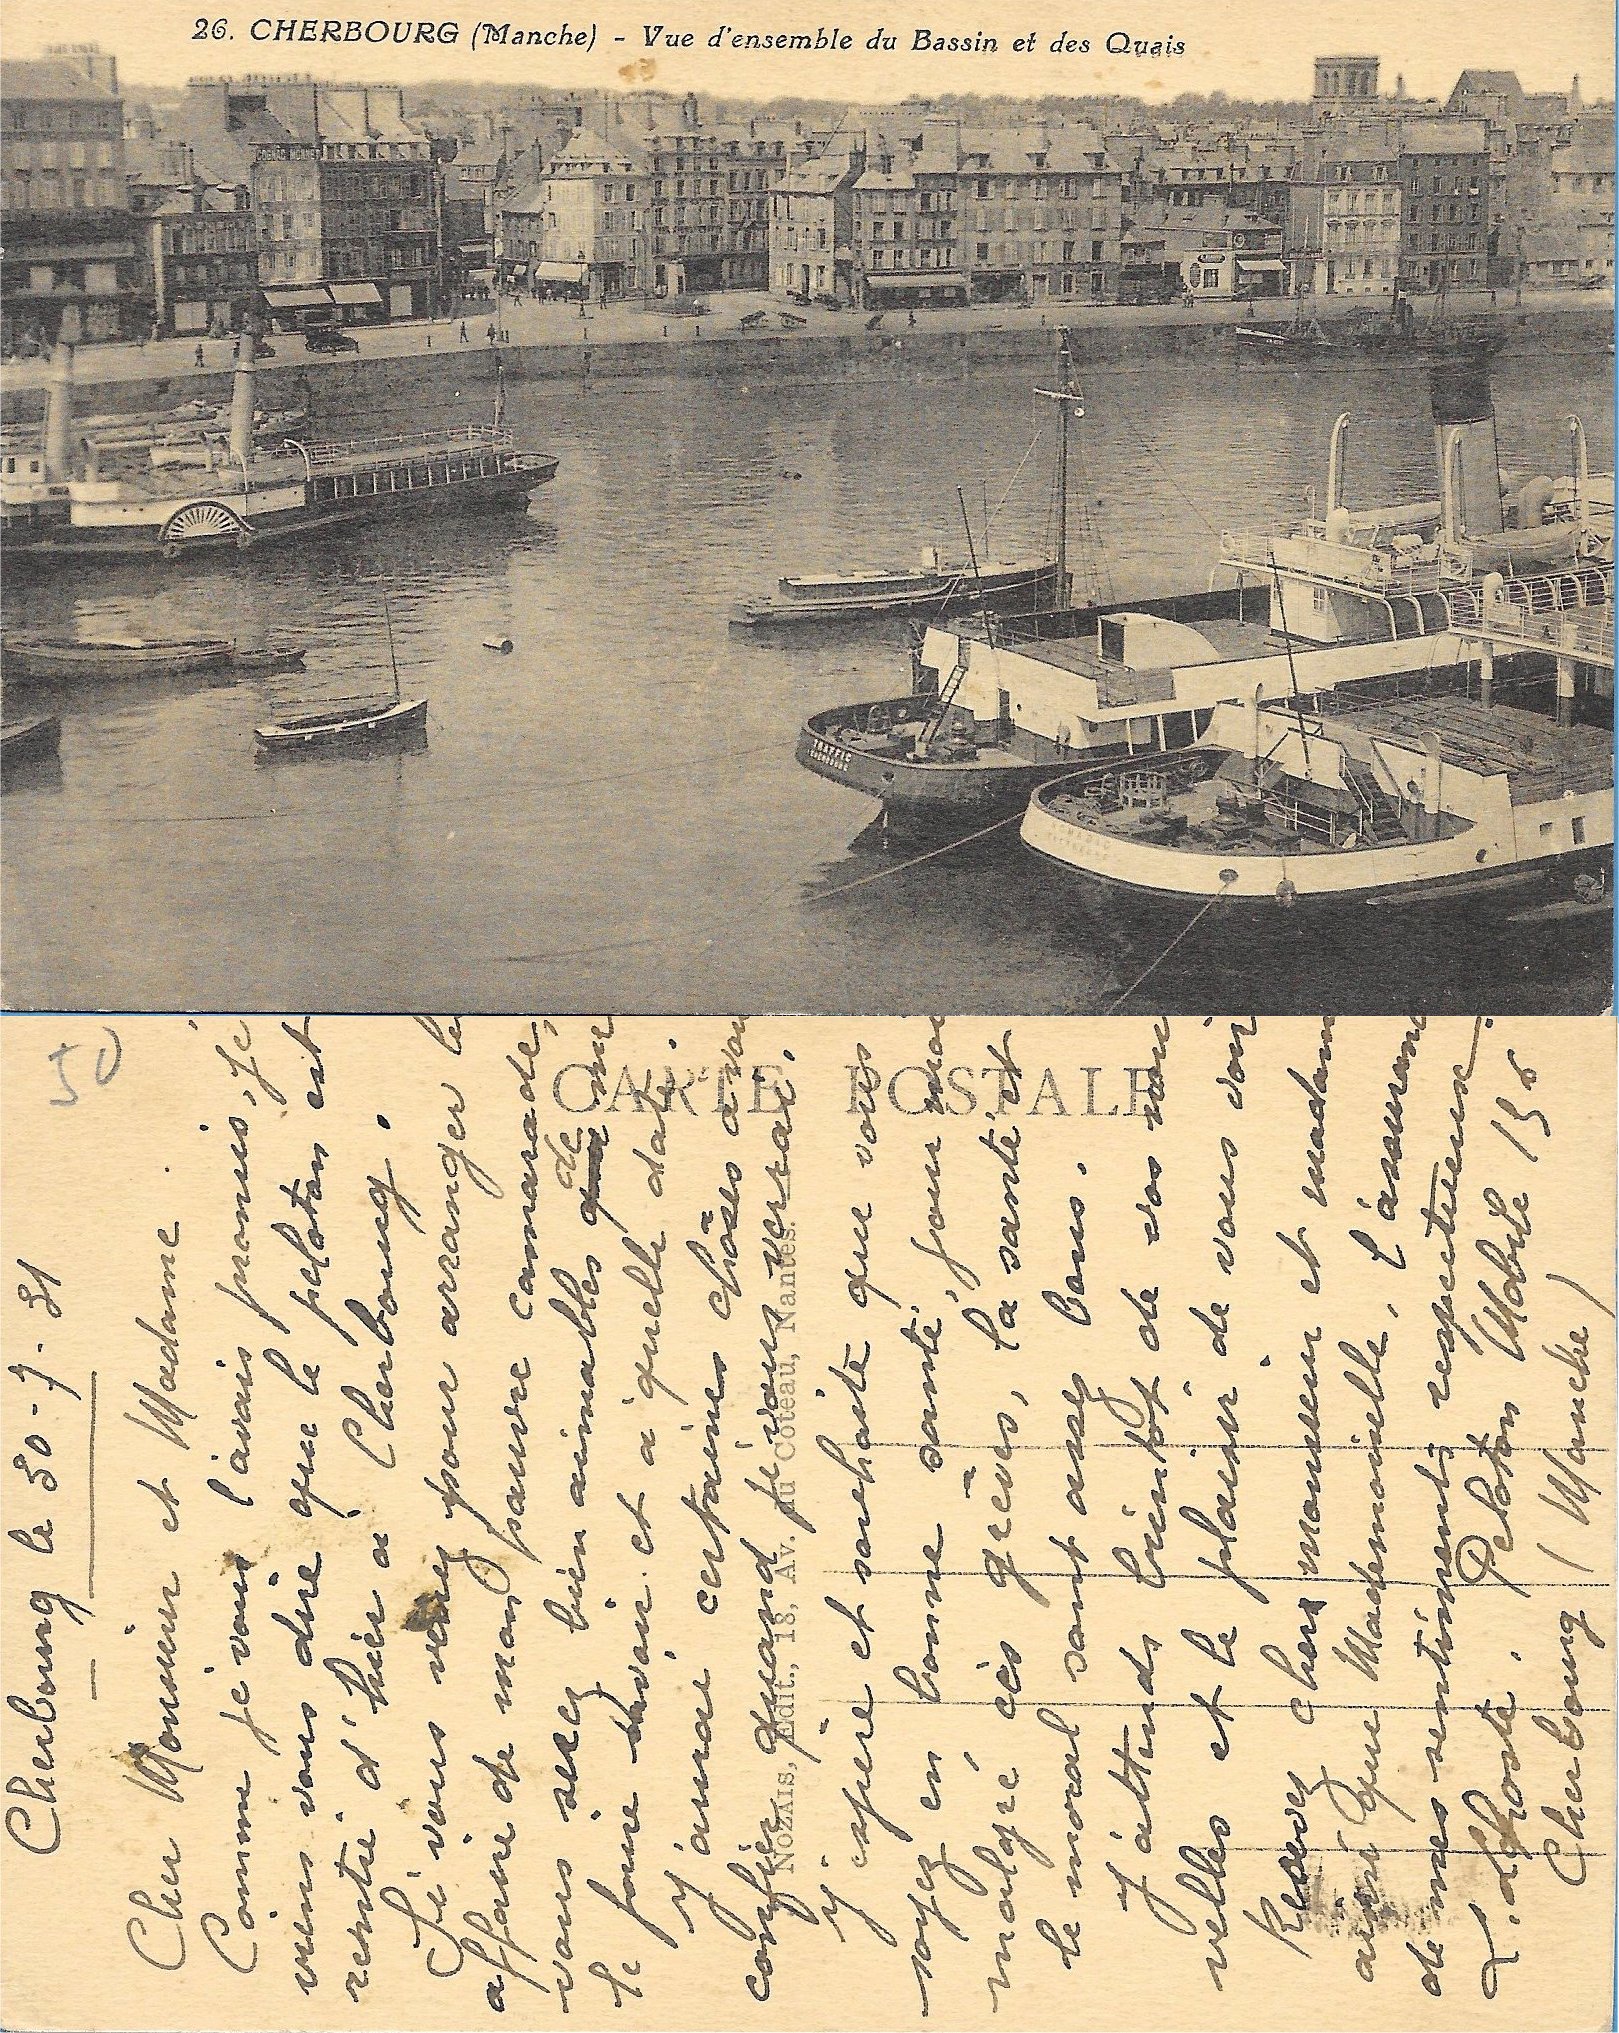 26. CHERBOURG (Manche) - Vue d'ensemble du Bassin et des Quais
TRAFIC
CHERBOURG
50
CARTE POSTALE
NOZAIS, Edit., 18, Av. du Coteau, Nantes.
Cherbourg le 30-7-31
Cher Monsieur et Madame.
Comme je vous l'avais promis, je
viens vous dire que le peloton est
rentré d'hier à Cherbourg.
Si vous venez pour arranger le
affaire de mon pauvre camarade,
vous serez bien aimables de me
le faire savoir et à quelle date.
J'aurai certaines choses à vou
confier quand je vous verrai.
J'espère et souhaite que vous
soyez en bonne santé, pour moi
malgré ces grèves, la santé et
le moral sont assez bons.
J'attends bientôt de vos nou
velles et le plaisir de vous voir
Recevez chers monsieur et madam
ainsi que Mademoiselle, l'assuranc
de mes sentiments respectueux.
L. Lhoste. Peloton Mobile 15
Cherbourg (Manche)